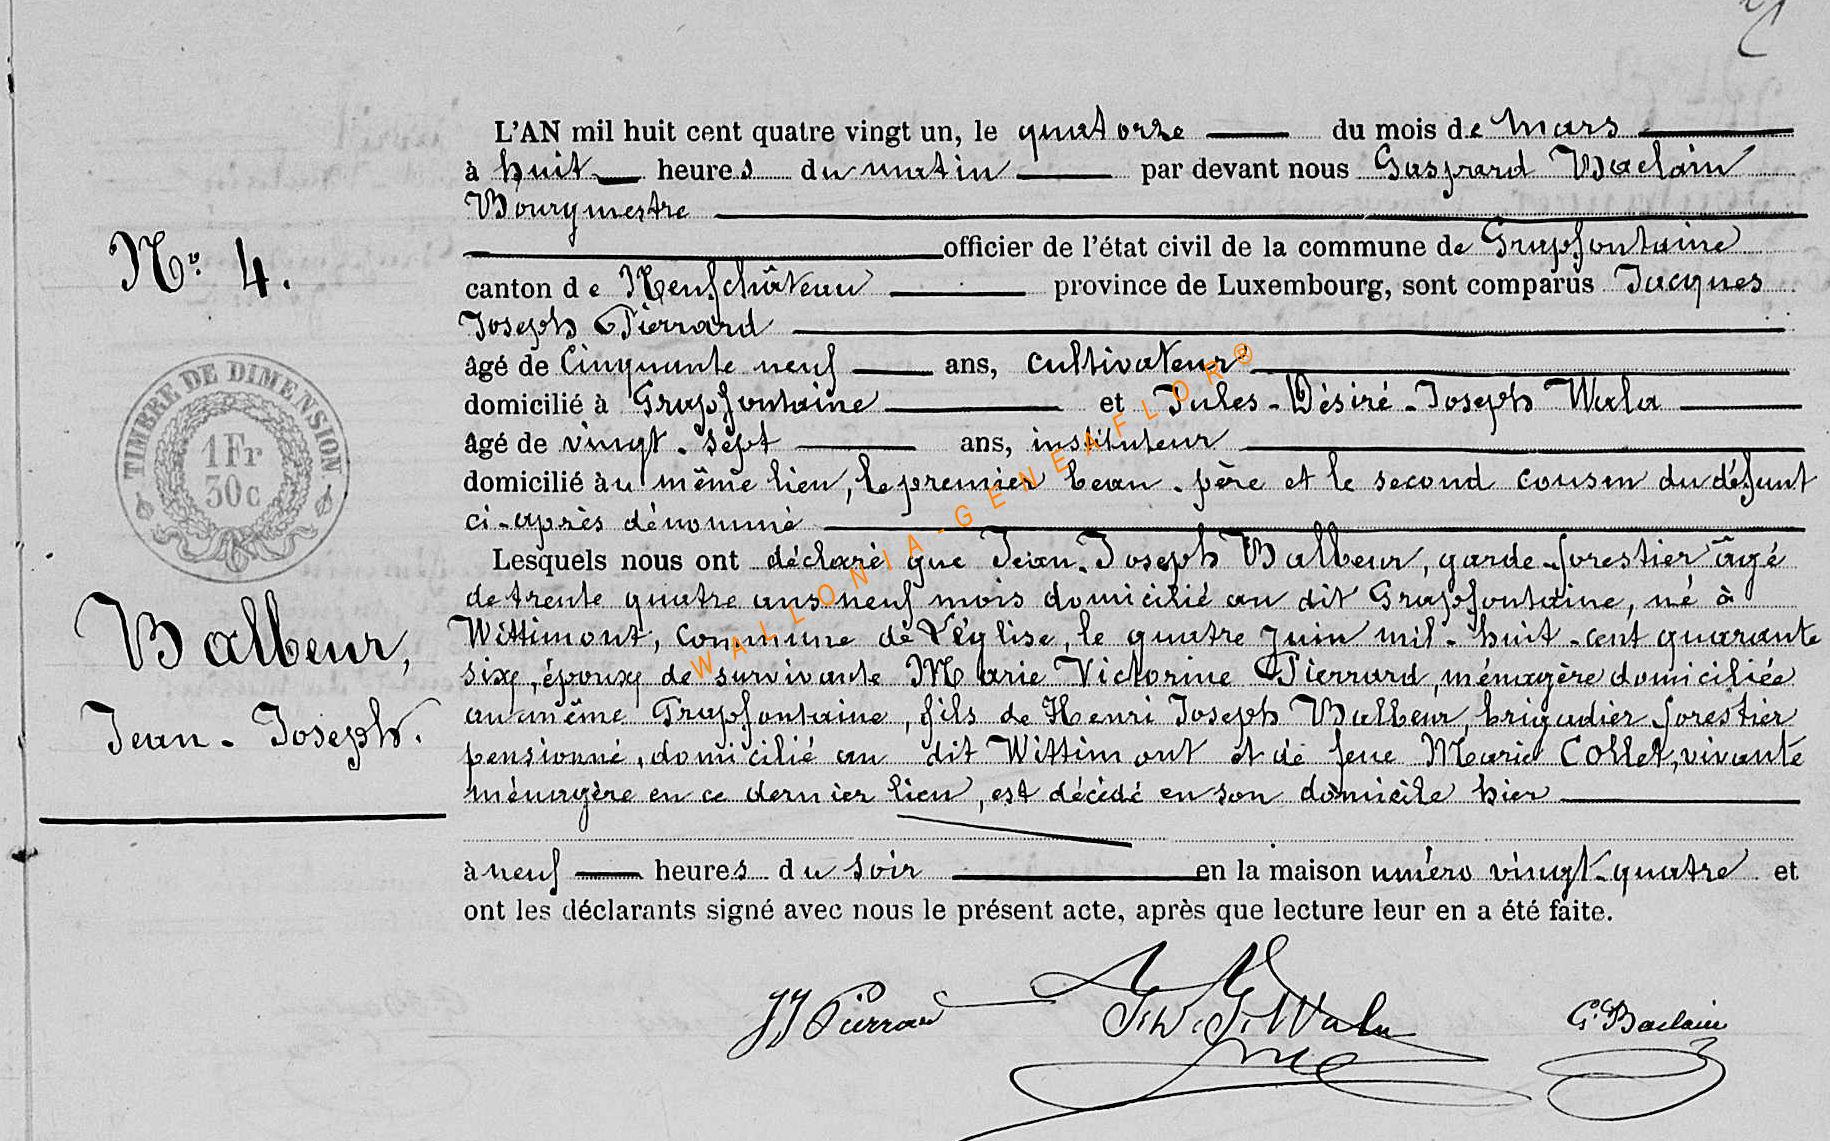 L'AN mil huit cent quatre vingt un, le quatorze du mois de Mars
à huit heures du matin par devant nous Gaspard Baclain
Bourgmestre
officier de l'état civil de la commune de Grapfontaine
N° 4.
canton de Neufchâteau province de Luxembourg, sont comparus Jacques
Joseph Pierrard
âgé de Cinquante neuf ans, cultivateur
domicilié à Grapfontaine et Jules-Désiré-Joseph Wala
âgé de vingt-sept ans, instituteur
domicilié au même lieu, le premier beau-père et le second cousin du défunt
ci-après dénommé
TIMBRE DE DIMENSION
1Fr
30c
Lesquels nous ont déclaré que Jean-Joseph Balbeur, garde-forestier âgé
de trente quatre ans neuf mois domicilié au dit Grapfontaine, né à
Wittimont, Commune de Léglise, le quatre Juin mil-huit-cent quarante
six, époux de survivante Marie Victorine Pierrard, ménagère domiciliée
au même Grapfontaine, fils de Henri Joseph Balbeur, brigadier forestier
pensionné, domicilié au dit Wittimont et de feue Marie Collet, vivante
ménagère en ce dernier lieu, est décédé en son domicile hier
Balbeur,
Jean-Joseph.
à neuf heures du soir en la maison numéro vingt-quatre et
ont les déclarants signé avec nous le présent acte, après que lecture leur en a été faite.
JJ Pierrard
Wala
G. Baclain
WALLONIA-GENEAFLOR®